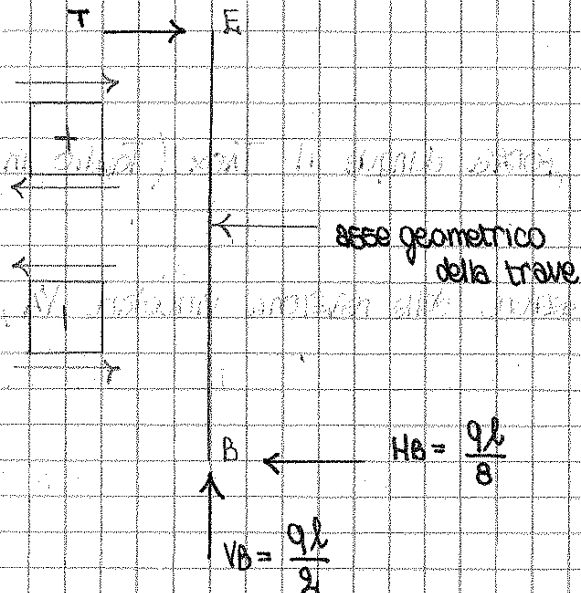 T
E
+
asse geometrico
della trave
B
HB = ql/8
VB = ql/2